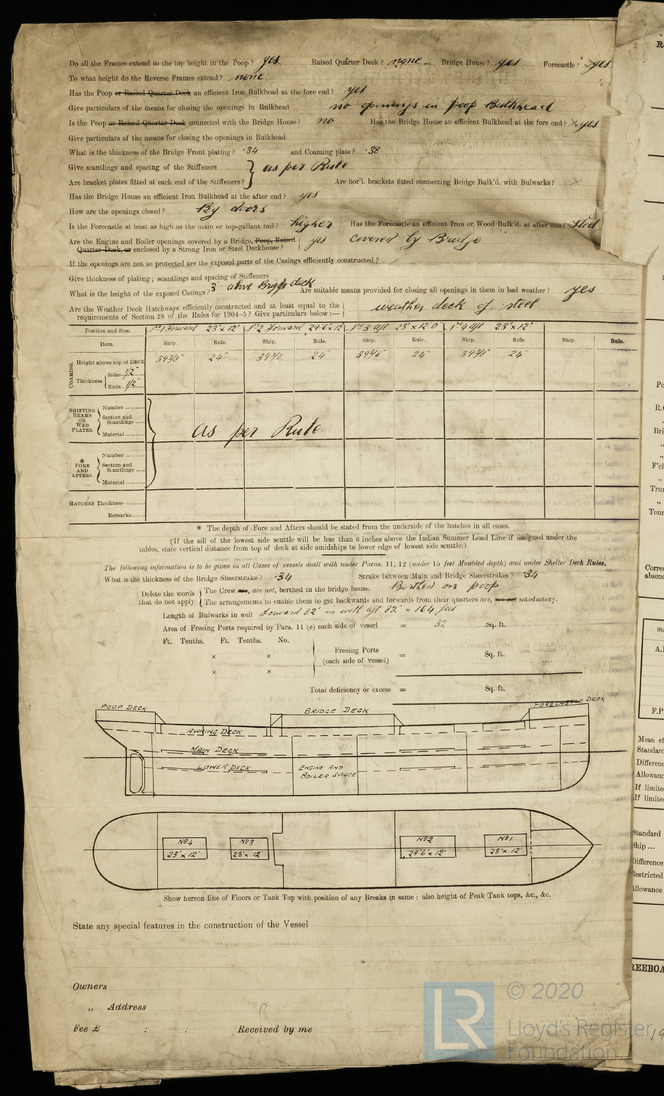 Do all the Frames extend to the top height in the Poop? yes Raised Quarter Deck? none Bridge House? yes Forecastle? yes
To what height do the Reverse Frames extend? none
Has the Poop or Raised Quarter Deck an efficient Iron Bulkhead at the fore end? yes
Give particulars of the means for closing the openings in Bulkhead no openings in poop Bulkhead
Is the Poop or Raised Quarter Deck connected with the Bridge House? no Has the Bridge House an efficient Bulkhead at the fore end? yes
Give particulars of the means for closing the openings in Bulkhead
What is the thickness of the Bridge Front plating? ·34 and Coaming plate? ·38
Give scantlings and spacing of the Stiffeners } as per Rule
Are bracket plates fitted at each end of the Stiffeners? Are hor'l. brackets fitted connecting Bridge Bulk'd. with Bulwarks?
Has the Bridge House an efficient Iron Bulkhead at the after end? yes
How are the openings closed? By doors
Is the Forecastle at least as high as the main or top-gallant rail? higher Has the Forecastle an efficient Iron or Wood Bulk'd. at after end? steel
Are the Engine and Boiler openings covered by a Bridge, Poop, Raised } yes covered by Bridge
Quarter Deck, or enclosed by a Strong Iron or Steel Deckhouse?
If the openings are not so protected are the exposed parts of the Casings efficiently constructed?
Give thickness of plating; scantlings and spacing of Stiffeners
What is the height of the exposed Casings? 3' above Bridge deck Are suitable means provided for closing all openings in them in bad weather? yes
Are the Weather Deck Hatchways efficiently constructed and at least equal to the weather deck of steel
requirements of Section 28 of the Rules for 1904-5? Give particulars below:—
Position and Size. No 1 Forward 23'×12' No 2 Forward 29'6×12' No 3 aft 23'×12'0 No 4 aft 23'×12'
Item. Ship. Rule. Ship. Rule. Ship. Rule. Ship. Rule. Ship. Rule.
COAMING Height above top of DECK 39½" 24" 39½" 24" 39½" 24" 39½" 24"
Thickness { Sides 1/2"
Ends 1/2"
SHIFTING BEAMS OR WEB PLATES. Number
Section and Scantlings as per Rule
Material
* FORE AND AFTERS. Number
Section and Scantlings
Material
HATCHES Thickness
Remarks.
* The depth of Fore and Afters should be stated from the underside of the hatches in all cases.
(If the sill of the lowest side scuttle will be less than 6 inches above the Indian Summer Load Line if assigned under the
tables, state vertical distance from top of deck at side amidships to lower edge of lowest side scuttle.)
The following information is to be given in all Cases of vessels dealt with under Paras. 11, 12 (under 15 feet Moulded depth) and under Shelter Deck Rules.
What is the thickness of the Bridge Sheerstrake? ·34 Strake between Main and Bridge Sheerstrakes? ·34
Delete the words { The Crew are, are not, berthed in the bridge house. Berthed in poop
that do not apply. The arrangements to enable them to get backwards and forwards from their quarters are, are not satisfactory.
Length of Bulwarks in well Forward 82' in well aft 82' = 164 feet
Area of Freeing Ports required by Para. 11 (e) each side of vessel = 32 Sq. ft.
Ft. Tenths. Ft. Tenths. No.
× × Freeing Ports = Sq. ft.
× × (each side of vessel)
Total deficiency or excess = Sq. ft.
POOP DECK BRIDGE DECK FORECASTLE DECK
AWNING DECK
MAIN DECK
LOWER DECK ENGINE AND
BOILER SPACE
No 4 No 3 No 2 No 1
23'×12' 23'×12' 29'6×12' 23'×12'
Show hereon line of Floors or Tank Top with position of any Breaks in same: also height of Peak Tank tops, &c., &c.
State any special features in the construction of the Vessel
Owners
„ Address
Fee £ : : Received by me
© 2020
Lloyd's Register
Foundation